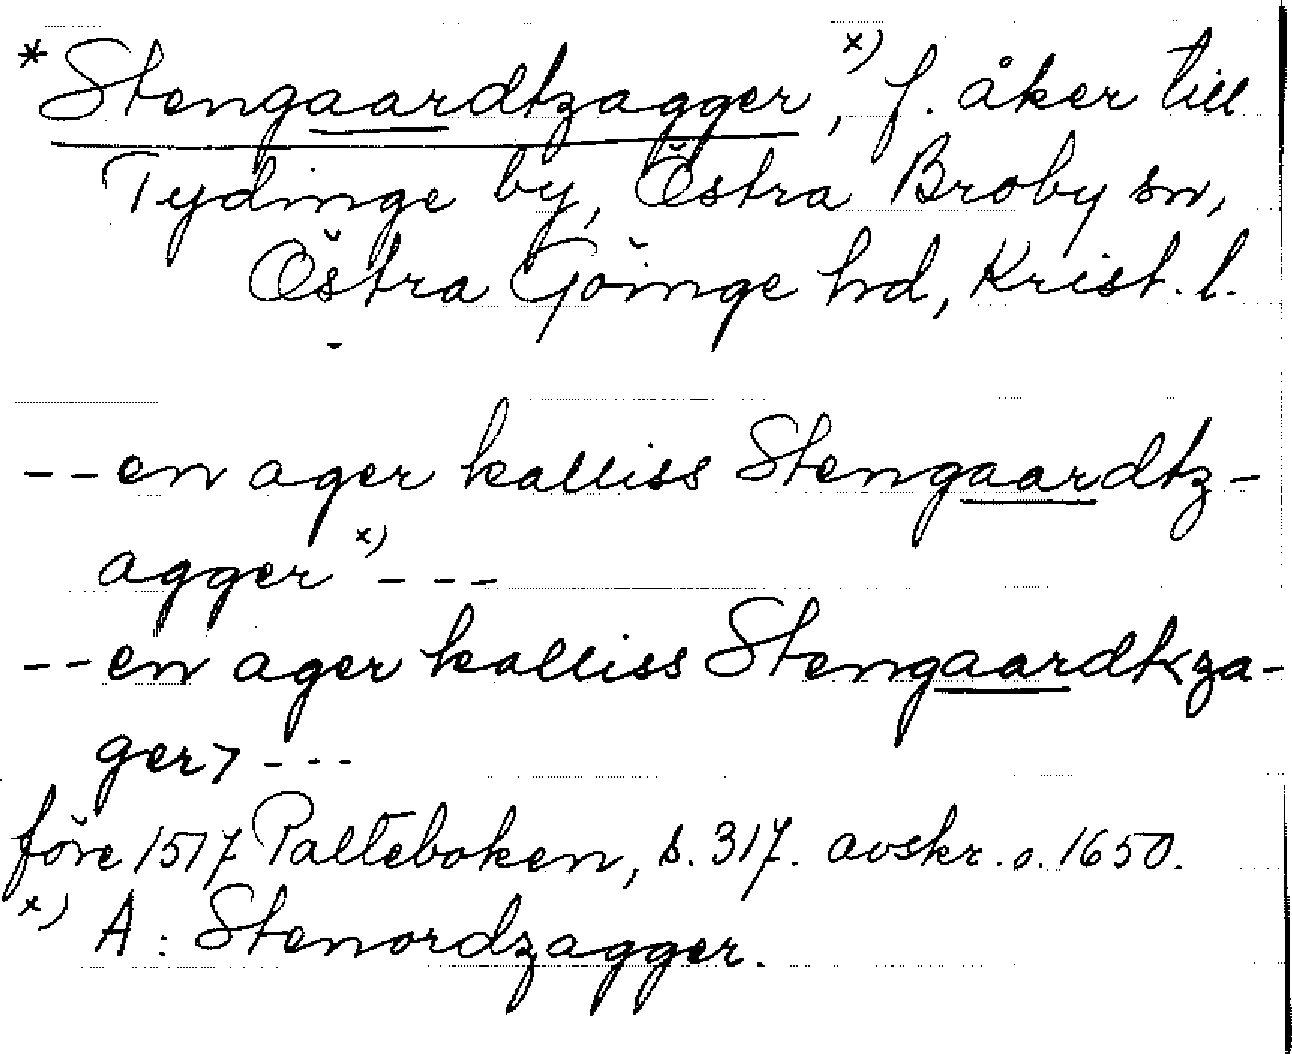 *Stengaardtzagger,ˣ⁾ f. åker till
Tydinge by, Östra Broby sn,
Östra Göinge hd, Krist. l.
--en ager kalliss Stengaardtz-
aggerˣ⁾ ---
--en ager kalliss Stengaardt<za-
ger> ---
före 1517 Palteboken, s. 317. avskr. o. 1650.
ˣ⁾ A: Stenordzagger.